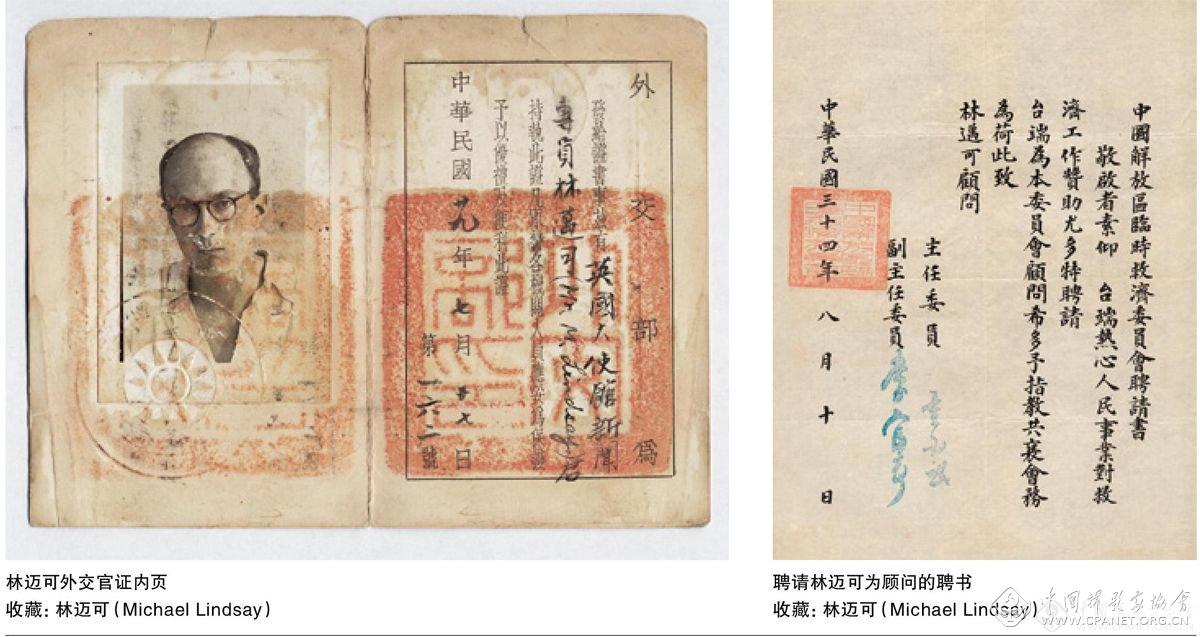 外交部為
發給證書事茲有英國大使館新聞
專員林邁可(Mr. M. Lindsay)君
持執此證凡各機關人員保護
予以優禮及便利此證
中華民國廿九年七月廿七日
第一六二號
中國解放區臨時救濟委員會聘請書
敬啟者素仰 台端熱心人民事業對救
濟工作贊助尤多特聘請
台端為本委員會顧問希多予指教共襄會務
為荷此致
林邁可顧問
主任委員
副主任委員
中華民國三十四年八月十日
林迈可外交官证内页
收藏: 林迈可 (Michael Lindsay)
聘请林迈可为顾问的聘书
收藏: 林迈可 (Michael Lindsay)
中国摄影家协会
WWW.CPANET.ORG.CN